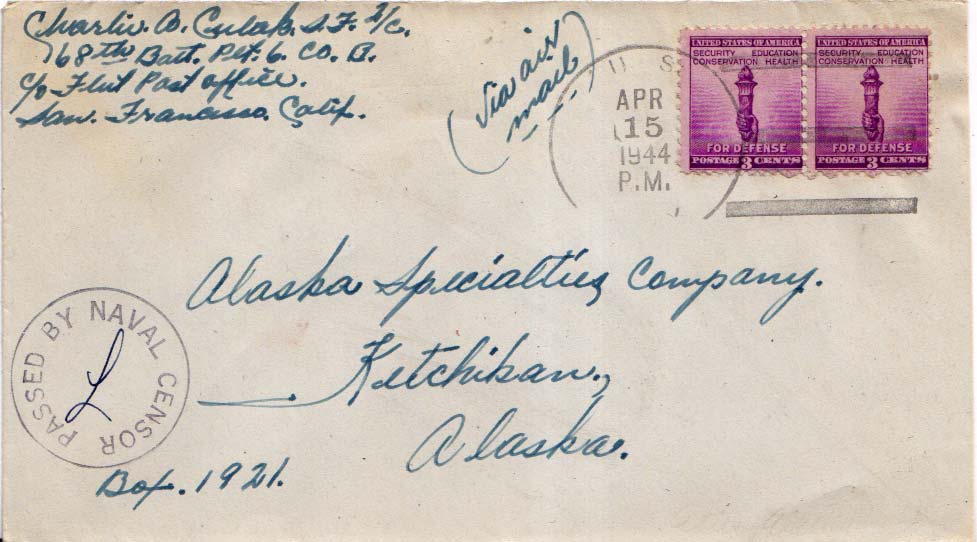 Charlie. A. Culak. S.F. 2/c.
68th Batt. Plt. 6. Co. B.
c/o Fleet Post office.
San. Francisco. Calif.
(via air
mail.)
U. S.
APR
15
1944
P.M.
UNITED STATES OF AMERICA
SECURITY EDUCATION
CONSERVATION HEALTH
FOR DEFENSE
POSTAGE 3 CENTS
UNITED STATES OF AMERICA
SECURITY EDUCATION
CONSERVATION HEALTH
FOR DEFENSE
POSTAGE 3 CENTS
Alaska Specialties Company.
Ketchikan,
Alaska.
PASSED BY NAVAL CENSOR
L
Box. 1921.